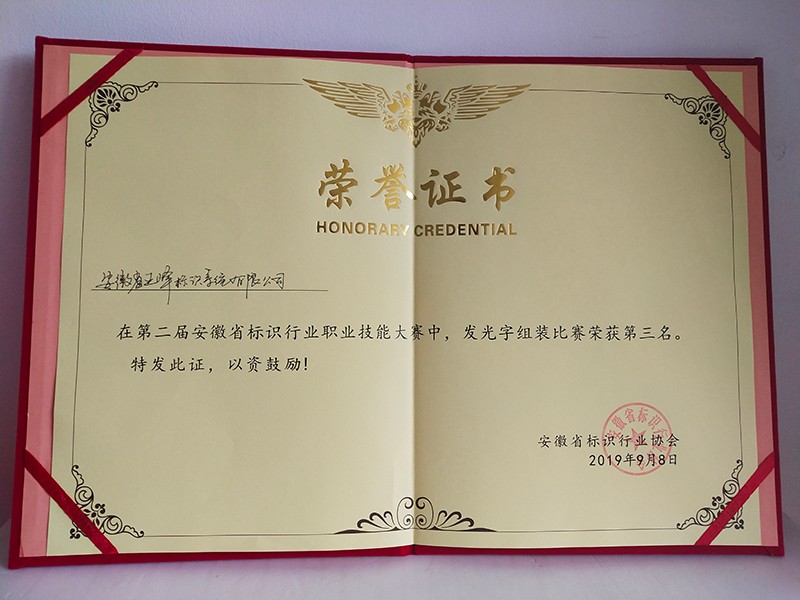 荣誉证书
HONORARY CREDENTIAL
安徽省玉峰标识系统有限公司
在第二届安徽省标识行业职业技能大赛中，发光字组装比赛荣获第三名。
特发此证，以资鼓励！
安徽省标识行业协会
2019年9月8日
安徽省标识行